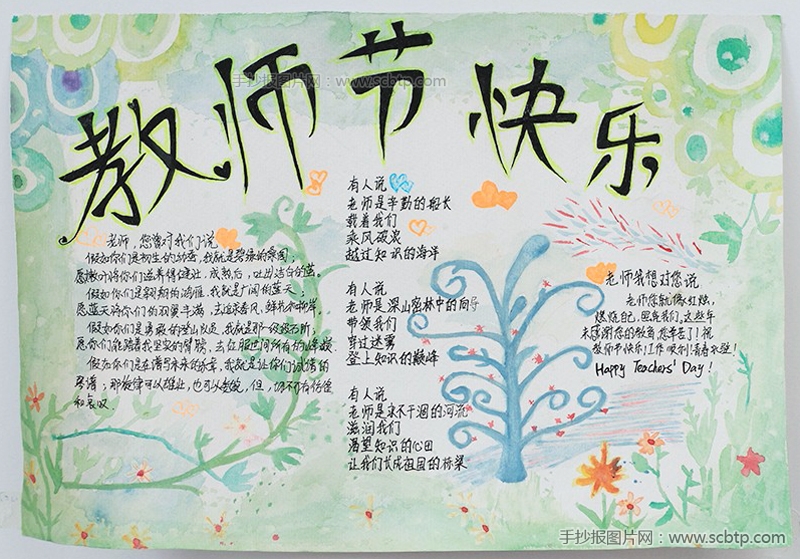 教师节快乐
手抄报图片网：www.scbtp.com
老师，您曾对我们说
假如你们是初生的幼蚕，我就是碧绿的桑园；
愿嫩叶将你们滋养得健壮，成熟后，吐出洁白的茧。
假如你们是
我就是广阔的蓝天；
愿蓝天将你们的羽翼丰满，去追求春风、鲜花和柳岸。
假如你们是勇敢的登山队员，我就是那一级级石阶；
愿你们能踏着我坚实的臂膀，去征服世间所有的峰巅
假如你们是在谱写未来的乐章，我就是让你们试谱的
琴谱；那旋律可以雄壮，也可以委婉，但，切不可有彷徨
和哀叹
有人说
老师是辛勤的船长
载着我们
乘风破浪
越过知识的海洋
有人说
老师是深山密林中的向导
带领我们
穿过迷雾
登上知识的巅峰
有人说
老师是永不干涸的河流
滋润我们
渴望知识的心田
让我们长成祖国的栋梁
老师我想对您说
老师您就像红烛，
燃烧自己，照亮我们，这些年
来感谢您的教育您辛苦了！祝
教师节快乐！工作顺利！青春永驻！
Happy Teachers' Day!
手抄报图片网：www.scbtp.com